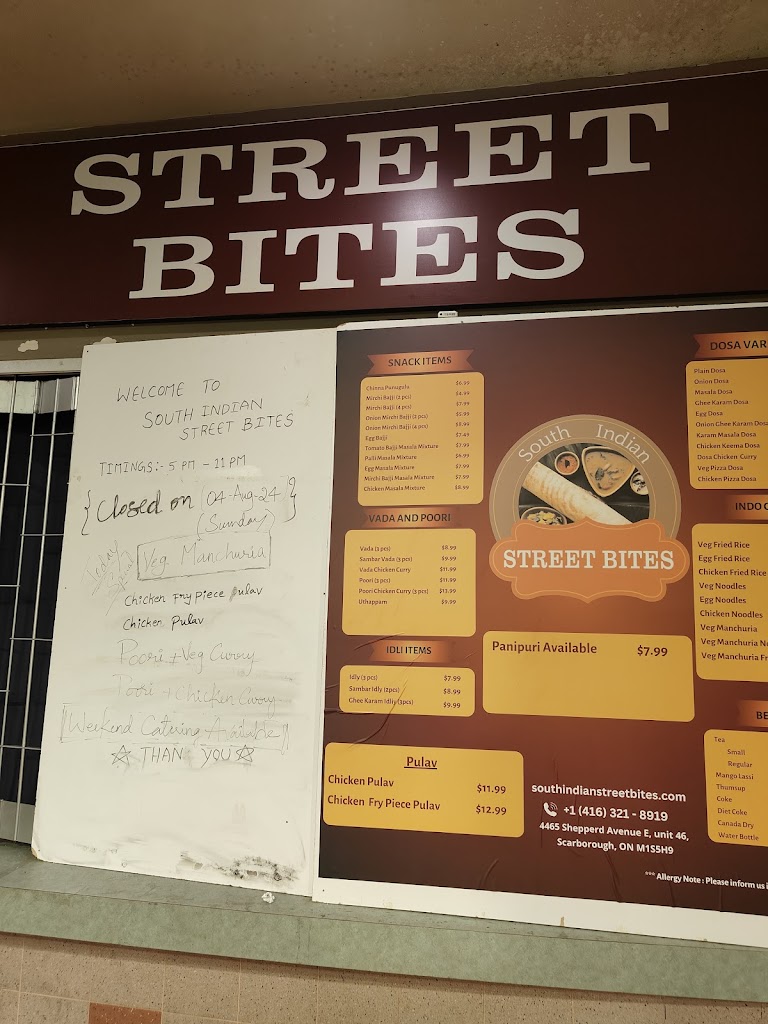 STREET
BITES
WELCOME TO
SOUTH INDIAN
STREET BITES
TIMINGS:- 5 PM - 11 PM
{Closed on (04-Aug-24)}
(Sunday)
Veg Manchuria
Chicken Fry piece Pulav
Chicken Pulav
Poori + Veg Curry
Poori + Chicken Curry
[Weekend Catering Available]
☆ THANK YOU ☆
SNACK ITEMS
Chinna Punugulu $6.99
Mirchi Bajji (2 pcs) $4.99
Mirchi Bajji (4 pcs) $7.99
Onion Mirchi Bajji (2 pcs) $5.99
Onion Mirchi Bajji (4 pcs) $8.99
Egg Bajji $7.49
Tomato Bajji Masala Mixture $7.99
Palli Masala Mixture $6.99
Egg Masala Mixture $7.99
Mirchi Bajji Masala Mixture $7.99
Chicken Masala Mixture $8.99
VADA AND POORI
Vada (3 pcs) $8.99
Sambar Vada (3 pcs) $9.99
Vada Chicken Curry $11.99
Poori (3 pcs) $11.99
Poori Chicken Curry (3 pcs) $13.99
Uthappam $9.99
IDLI ITEMS
Idly (3 pcs) $7.99
Sambar Idly (2pcs) $8.99
Ghee Karam Idliy (3pcs) $9.99
Pulav
Chicken Pulav $11.99
Chicken Fry Piece Pulav $12.99
South Indian
STREET BITES
Panipuri Available $7.99
southindianstreetbites.com
+1 (416) 321 - 8919
4465 Shepperd Avenue E, unit 46,
Scarborough, ON M1S5H9
DOSA VAR
Plain Dosa
Onion Dosa
Masala Dosa
Ghee Karam Dosa
Egg Dosa
Onion Ghee Karam Dosa
Karam Masala Dosa
Chicken Keema Dosa
Dosa Chicken Curry
Veg Pizza Dosa
Chicken Pizza Dosa
INDO C
Veg Fried Rice
Egg Fried Rice
Chicken Fried Rice
Veg Noodles
Egg Noodles
Chicken Noodles
Veg Manchuria
Veg Manchuria No
Veg Manchuria Fr
BE
Tea
Small
Regular
Mango Lassi
Thumsup
Coke
Diet Coke
Canada Dry
Water Bottle
*** Allergy Note : Please inform us i